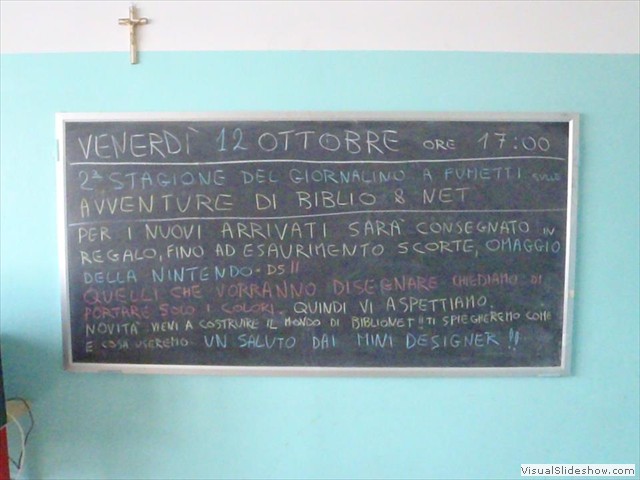 VENERDÌ 12 OTTOBRE ORE 17:00
2ª STAGIONE DEL GIORNALINO A FUMETTI SULLE
AVVENTURE DI BIBLIO & NET
PER I NUOVI ARRIVATI SARÀ CONSEGNATO IN
REGALO, FINO AD ESAURIMENTO SCORTE, OMAGGIO
DELLA NINTENDO-DS!!
QUELLI CHE VORRANNO DISEGNARE CHIEDIAMO DI
PORTARE SOLO I COLORI. QUINDI VI ASPETTIAMO.
NOVITÀ VIENI A COSTRUIRE IL MONDO DI BIBLIONET!! TI SPIEGHEREMO COME
E COSA USEREMO. UN SALUTO DAI MINI DESIGNER!!
VisualSlideshow.com